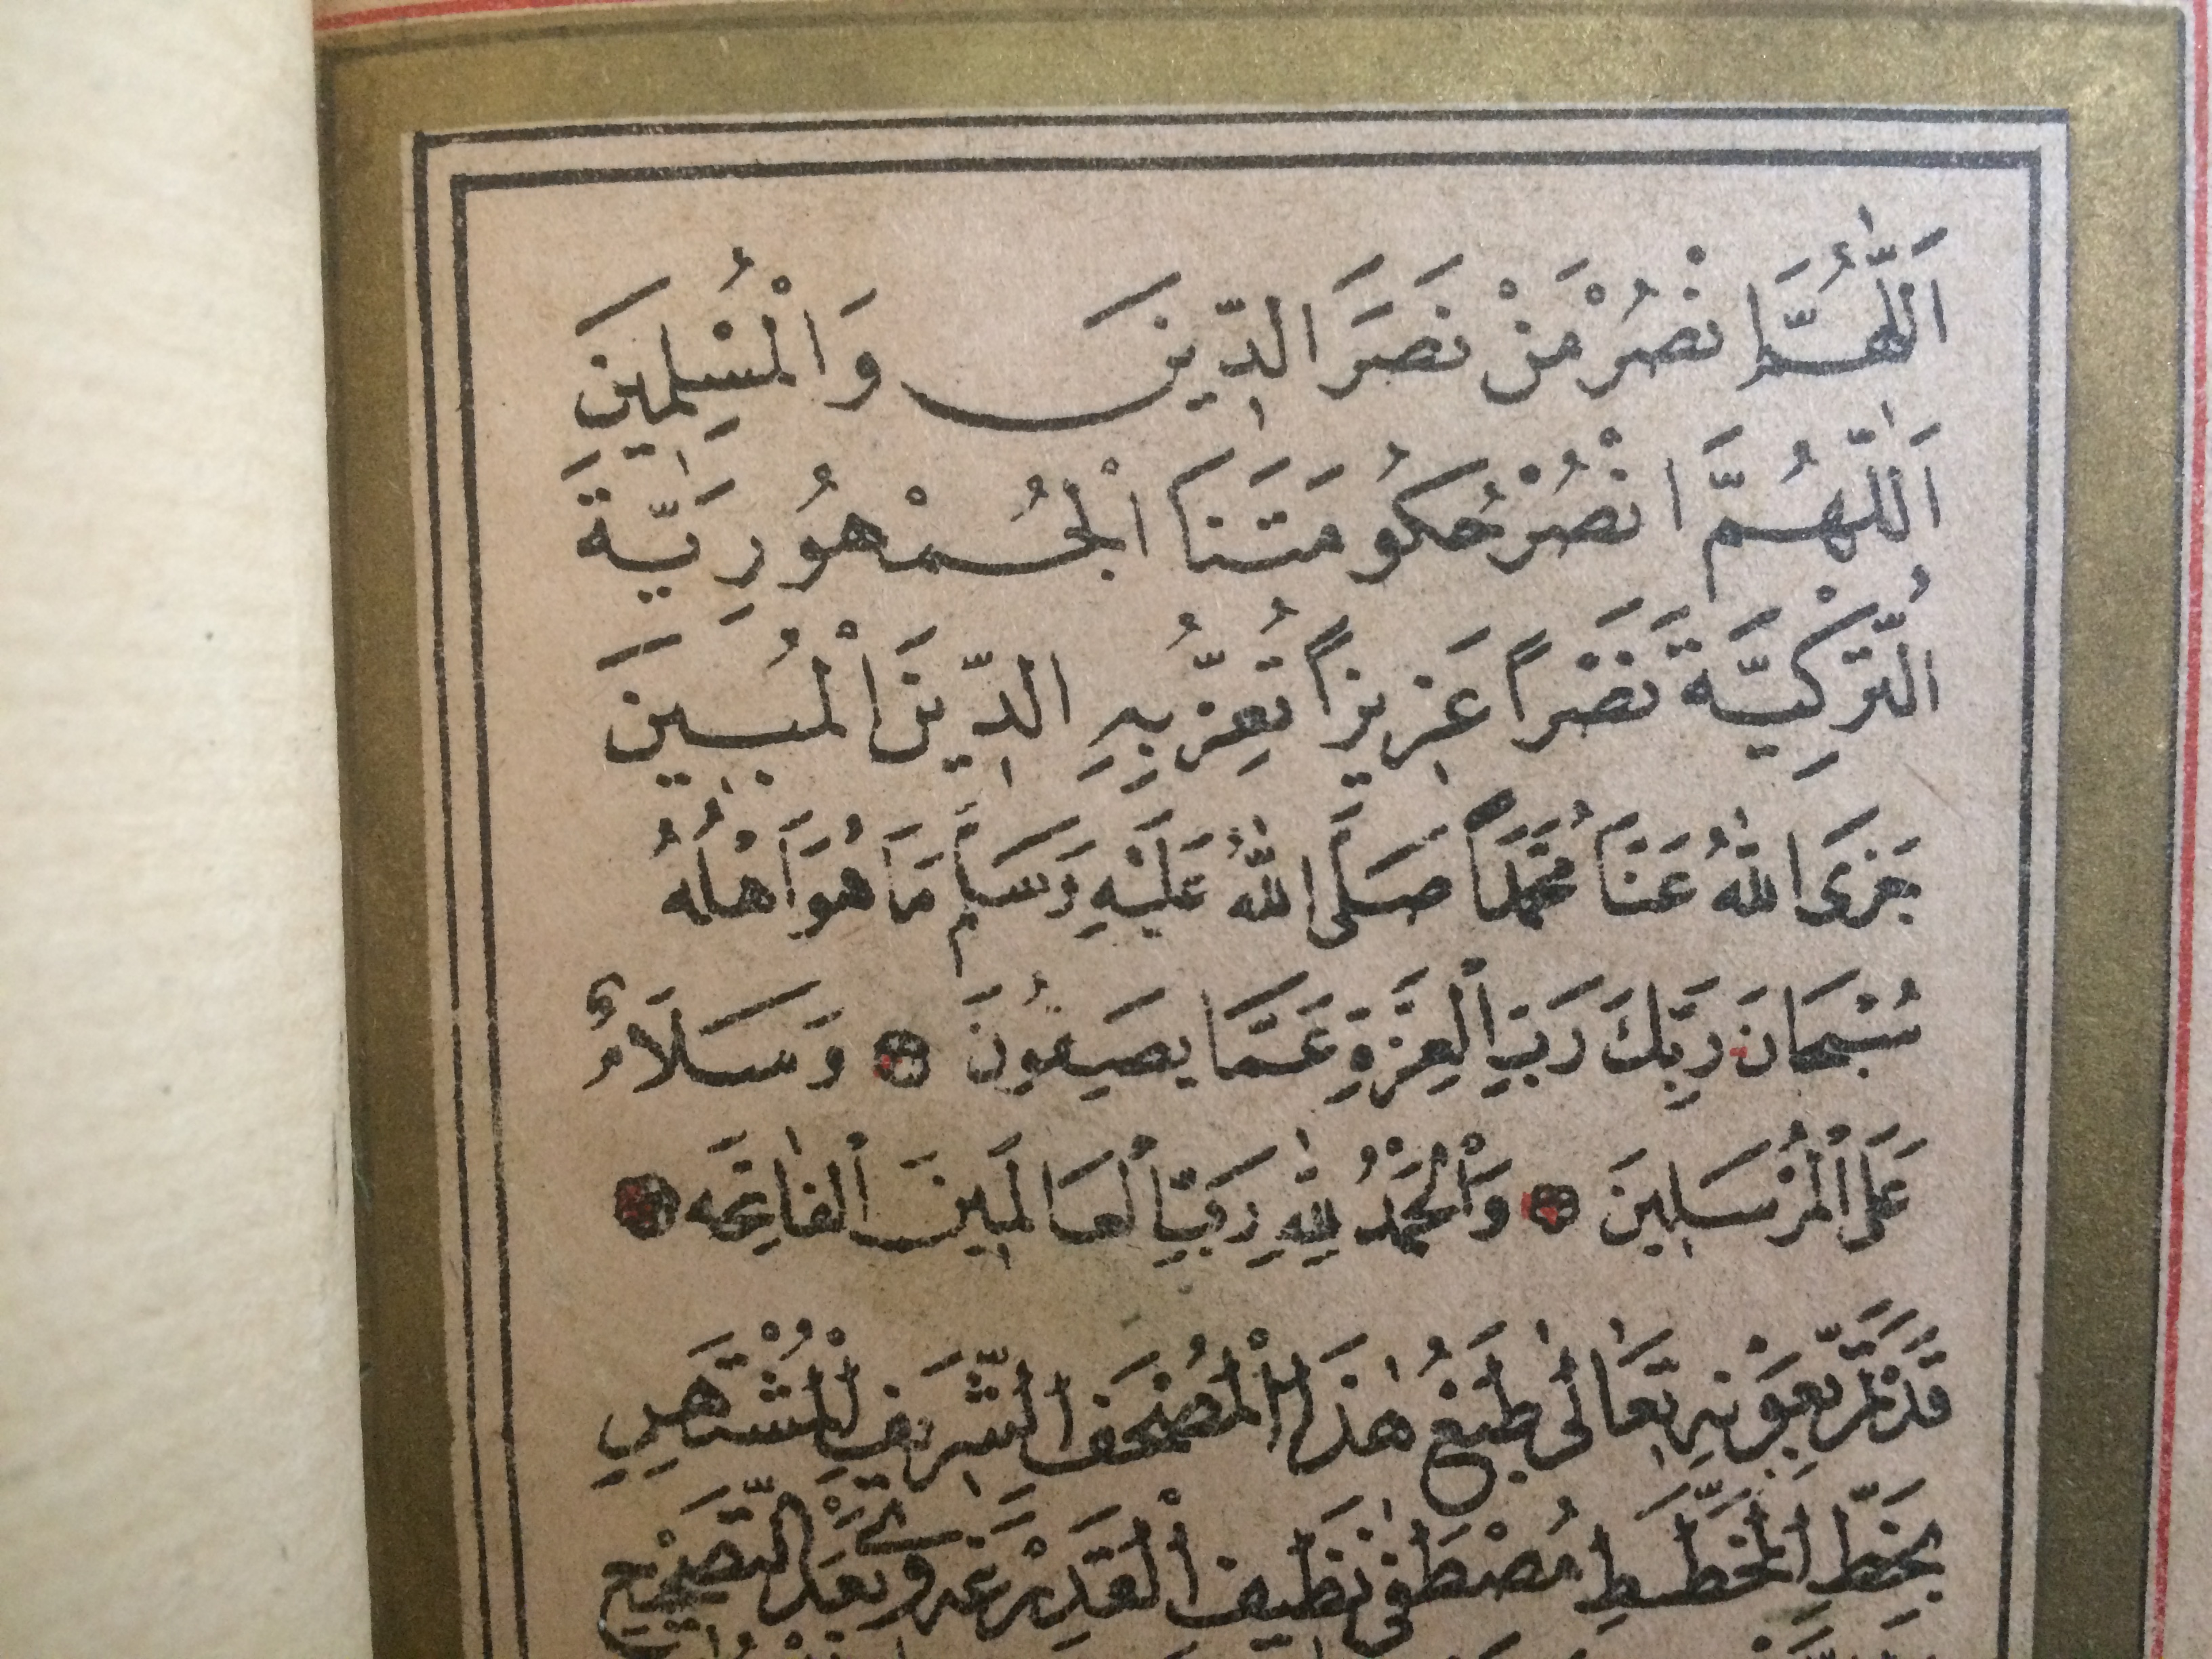 اَللّٰهُمَّ انْصُرْ مَنْ نَصَرَ الدِّينَ وَالْمُسْلِمِينَ
اَللّٰهُمَّ انْصُرْ حُكُومَتَنَا الْجُمْهُورِيَّةَ
التُّرْكِيَّةَ نَصْراً عَزِيزاً تُعِزُّ بِهِ الدِّينَ الْمُبِينَ
جَزَى اللّٰهُ عَنَّا مُحَمَّداً صَلَّى اللّٰهُ عَلَيْهِ وَسَلَّمَ مَا هُوَ اَهْلُهُ
سُبْحَانَ رَبِّكَ رَبِّ الْعِزَّةِ عَمَّا يَصِفُونَ وَسَلَامٌ
عَلَى الْمُرْسَلِينَ وَالْحَمْدُ لِلّٰهِ رَبِّ الْعَالَمِينَ الْفَاتِحَه
قَدْ تَمَّ بِعَوْنِهِ تَعَالٰى طَبْعُ هٰذَا الْمُصْحَفِ الشَّرِيفِ الْمُشْتَهِرِ
بِخَطِّ الْخَطَّاطِ مُصْطَفٰى نَظِيفِ الْقَدِرْغَهوِي بَعْدَ التَّصْحِيحِ